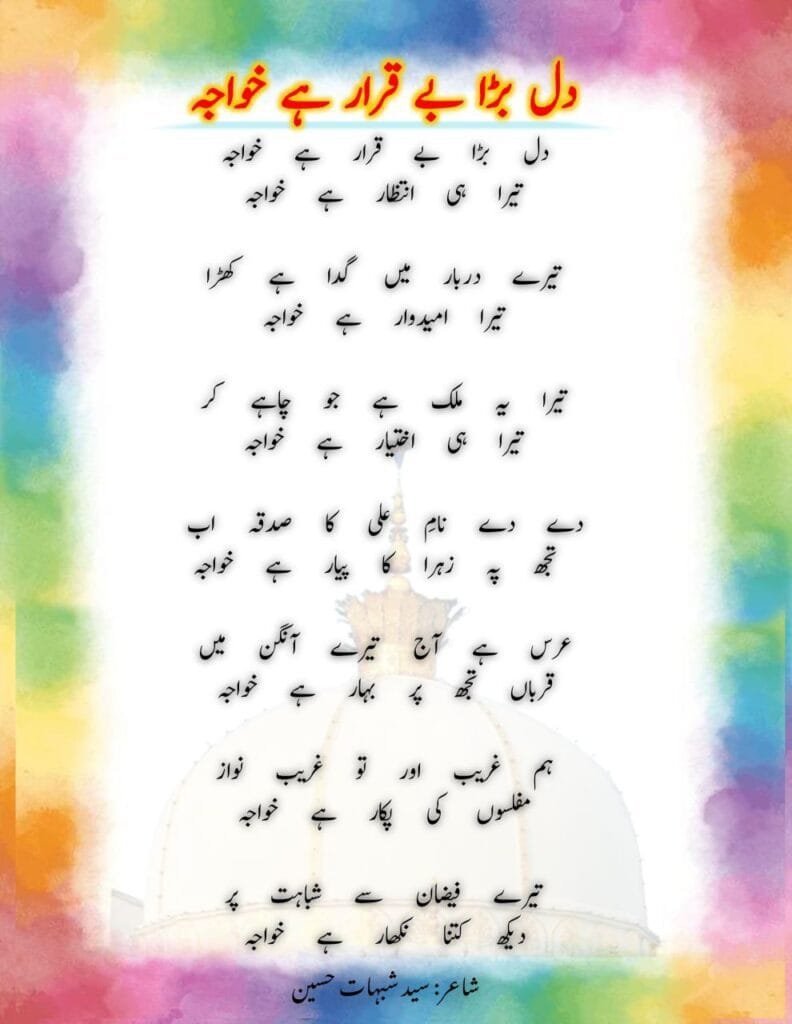 دل بڑا بے قرار ہے خواجہ
دل بڑا بے قرار ہے خواجہ
تیرا ہی انتظار ہے خواجہ
تیرے دربار میں گدا ہے کھڑا
تیرا امیدوار ہے خواجہ
تیرا یہ ملک ہے جو چاہے کر
تیرا ہی اختیار ہے خواجہ
دے دے نامِ علی کا صدقہ اب
تجھ پہ زہرا کا پیار ہے خواجہ
عرس ہے آج تیرے آنگن میں
قرباں تجھ پر بہار ہے خواجہ
ہم غریب اور تو غریب نواز
مفلسوں کی پکار ہے خواجہ
تیرے فیضان سے شباہت پر
دیکھ کتنا نکھار ہے خواجہ
شاعر: سید شبہات حسین